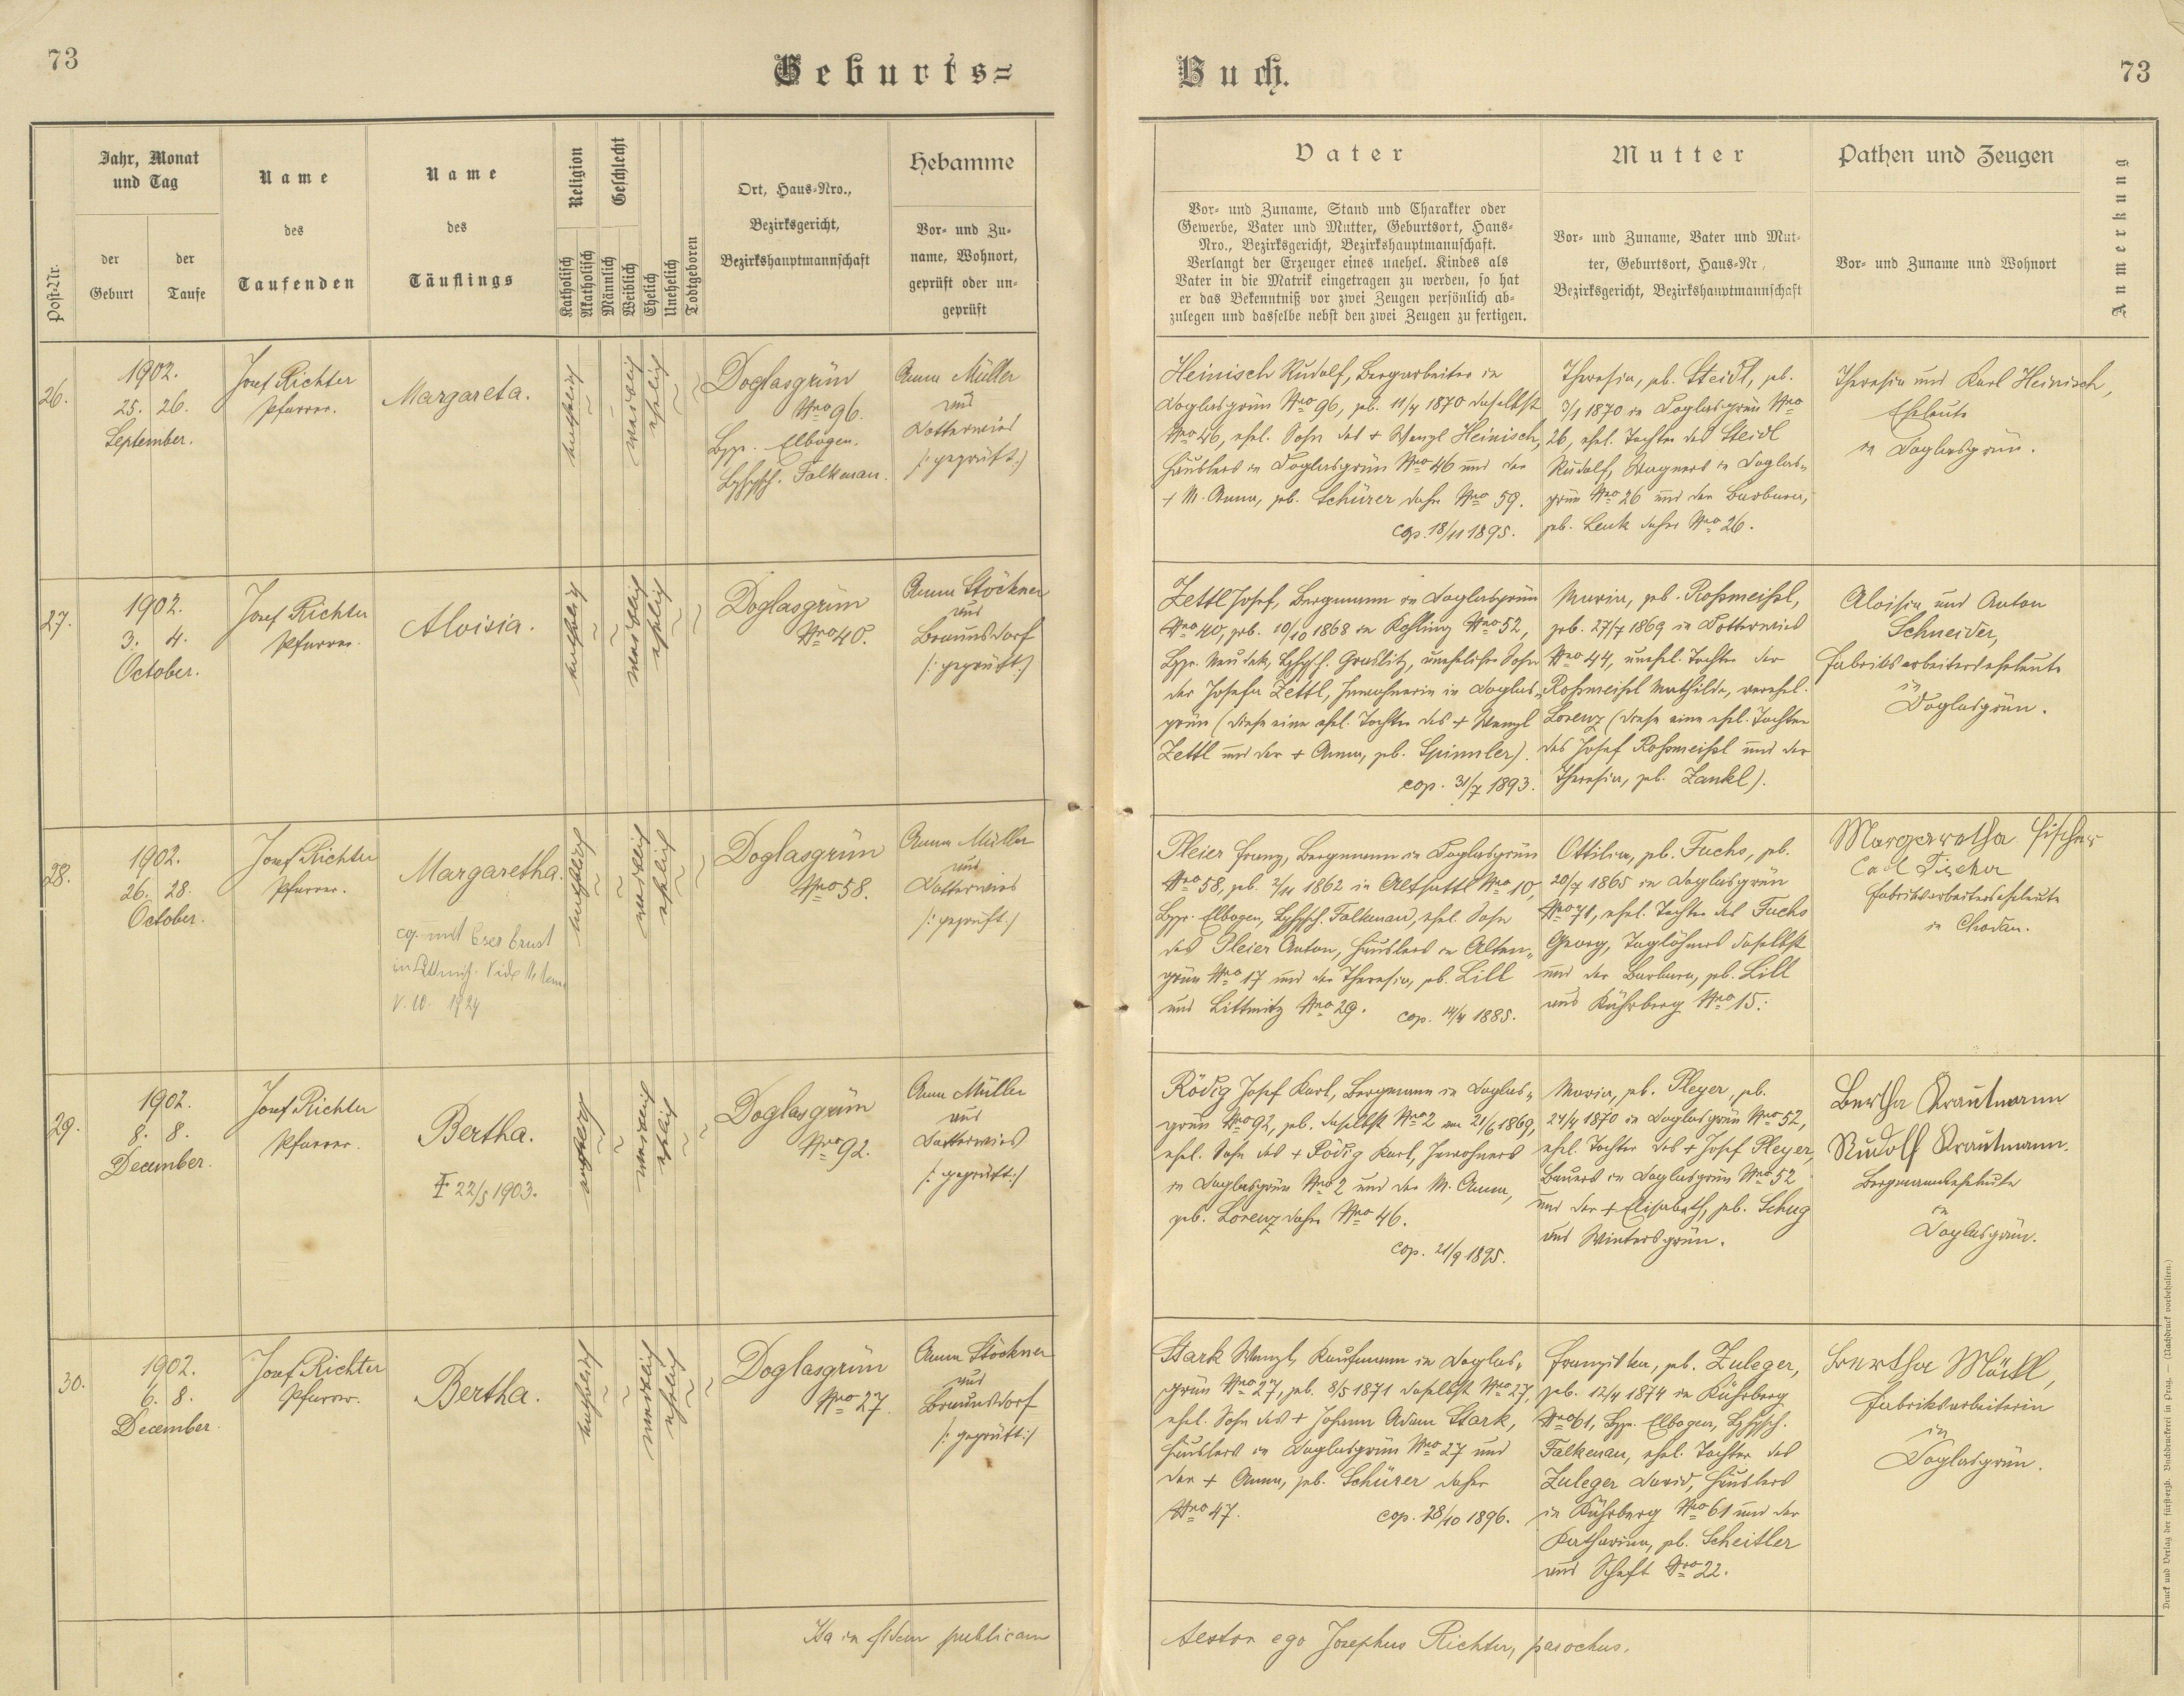 73
Geburts=
Buch.
73
Post-Nr.
Jahr, Monat
und Tag
der
Geburt
der
Taufe
Name
des
Taufenden
Name
des
Täuflings
Religion
Katholisch
Akatholisch
Geschlecht
Männlich
Weiblich
Ehelich
Unehelich
Todtgeboren
Ort, Haus-Nro.,
Bezirksgericht,
Bezirkshauptmannschaft
Hebamme
Vor- und Zu-
name, Wohnort,
geprüft oder un-
geprüft
Vater
Vor- und Zuname, Stand und Charakter oder
Gewerbe, Vater und Mutter, Geburtsort, Haus-
Nro., Bezirksgericht, Bezirkshauptmannschaft.
Verlangt der Erzeuger eines unehel. Kindes als
Vater in die Matrik eingetragen zu werden, so hat
er das Bekenntniß vor zwei Zeugen persönlich ab-
zulegen und dasselbe nebst den zwei Zeugen zu fertigen.
Mutter
Vor- und Zuname, Vater und Mut-
ter, Geburtsort, Haus-Nr.,
Bezirksgericht, Bezirkshauptmannschaft
Pathen und Zeugen
Vor- und Zuname und Wohnort
Anmerkung
26.
1902.
25. 26.
September.
Josef Richter
Pfarrer.
Margareta.
katholisch
~
~
weiblich
ehelich
~
~
Doglasgrün
Nro 96.
Bzg. Elbogen.
Bzhpsch. Falkenau.
Anna Müller
aus
Dotterwies
/: geprüft :/
Heinisch Rudolf, Bergarbeiter in
Doglasgrün Nro 96, geb. 11/4 1870 daselbst
Nro 46, ehel. Sohn des + Wenzl Heinisch,
Häuslers in Doglasgrün Nro 46 und der
+ M. Anna, geb. Schürer daher Nro 59.
cop. 18/11 1895.
Theresia, geb. Steidl, geb.
3/1 1870 in Doglasgrün Nro
26, ehel. Tochter des Steidl
Rudolf, Wagners in Doglas-
grün Nro 26 und der Barbara,
geb. Lenk daher Nro 26.
Theresia und Karl Heinisch,
Eheleute
in Doglasgrün.
27.
1902.
3. 4.
October.
Josef Richter
Pfarrer.
Aloisia.
katholisch
~
~
weiblich
ehelich
~
~
Doglasgrün
Nro 40.
Anna Stöckner
aus
Braunsdorf
/: geprüft :/
Zettl Josef, Bergmann in Doglasgrün
Nro 40, geb. 10/10 1868 in Kohling Nro 52,
Bzg. Neudek, Bzhpsch. Graslitz, unehelicher Sohn
der Josefa Zettl, Inwohnerin in Doglas-
grün (diese eine ehel. Tochter des + Wenzl
Zettl und der + Anna, geb. Spinnler).
cop. 31/7 1893.
Maria, geb. Roßmeisl,
geb. 27/7 1869 in Dotterwies
Nro 44, unehel. Tochter der
Roßmeisl Mathilde, verehel.
Lorenz (diese eine ehel. Tochter
des Josef Roßmeisl und der
Theresia, geb. Zankl).
Aloisia und Anton
Schneider,
Fabriksarbeiterseheleute
in
Doglasgrün.
28.
1902.
26. 28.
October.
Josef Richter
Pfarrer.
Margaretha.
cop. mit Eser Ernst
in Littmitz. Vide
V. 10. 1924
katholisch
~
~
weiblich
ehelich
~
~
Doglasgrün
Nro 58.
Anna Müller
aus
Dotterwies
/: geprüft :/
Pleier Franz, Bergmann in Doglasgrün
Nro 58, geb. 2/11 1862 in Altsattl Nro 10,
Bzg. Elbogen, Bzhpsch. Falkenau, ehel. Sohn
des Pleier Anton, Häuslers in Alten-
grün Nro 17 und der Theresia, geb. Lill
aus Littmitz Nro 29. cop. 14/4 1885.
Ottilia, geb. Fuchs, geb.
20/7 1865 in Doglasgrün
Nro 71, ehel. Tochter des Fuchs
Georg, Taglöhners daselbst
und der Barbara, geb. Lill
aus Kührberg Nro 15.
Margaretha Fischer
Carl Fischer
Fabriksarbeiterseheleute
in Chodau.
29.
1902.
8. 8.
December.
Josef Richter
Pfarrer.
Bertha.
+ 22/5 1903.
katholisch
~
~
weiblich
ehelich
~
~
Doglasgrün
Nro 92.
Anna Müller
aus
Dotterwies
/: geprüft :/
Rödig Josef Karl, Bergmann in Doglas-
grün Nro 92, geb. daselbst Nro 2 am 21/6 1869,
ehel. Sohn des + Rödig Karl, Inwohners
in Doglasgrün Nro 2 und der M. Anna,
geb. Lorenz daher Nro 46.
cop. 21/9 1895.
Maria, geb. Pleyer, geb.
24/4 1870 in Doglasgrün Nro 52,
ehel. Tochter des + Josef Pleyer,
Bauers in Doglasgrün Nro 52
und der + Elisabeth, geb. Schug
aus Wintersgrün.
Bertha Trautmann
Rudolf Trautmann.
Bergmannseheleute
in
Doglasgrün.
30.
1902.
6. 8.
December.
Josef Richter
Pfarrer.
Bertha.
katholisch
~
~
weiblich
ehelich
~
~
Doglasgrün
Nro 27
Anna Stöckner
aus
Braunsdorf
/: geprüft :/
Stark Wenzl, Kaufmann in Doglas-
grün Nro 27, geb. 8/5 1871 daselbst Nro 27,
ehel. Sohn des + Johann Adam Stark,
Häuslers in Doglasgrün Nro 27 und
der + Anna, geb. Schürer daher
Nro 47. cop. 28/10 1896.
Franziska, geb. Zuleger,
geb. 12/4 1874 in Kührberg
Nro 61, Bzg. Elbogen, Bzhpsch.
Falkenau, ehel. Tochter des
Zuleger David, Häuslers
in Kührberg Nro 61 und der
Katharina, geb. Scheitler
aus Schaft Nro 22.
Bertha Möckl,
Fabriksarbeiterin
in
Doglasgrün.
Ita in fidem publicam
testor ego Josephus Richter, parochus.
Druck und Verlag der fürsterzb. Buchdruckerei in Prag. — (Nachdruck vorbehalten.)